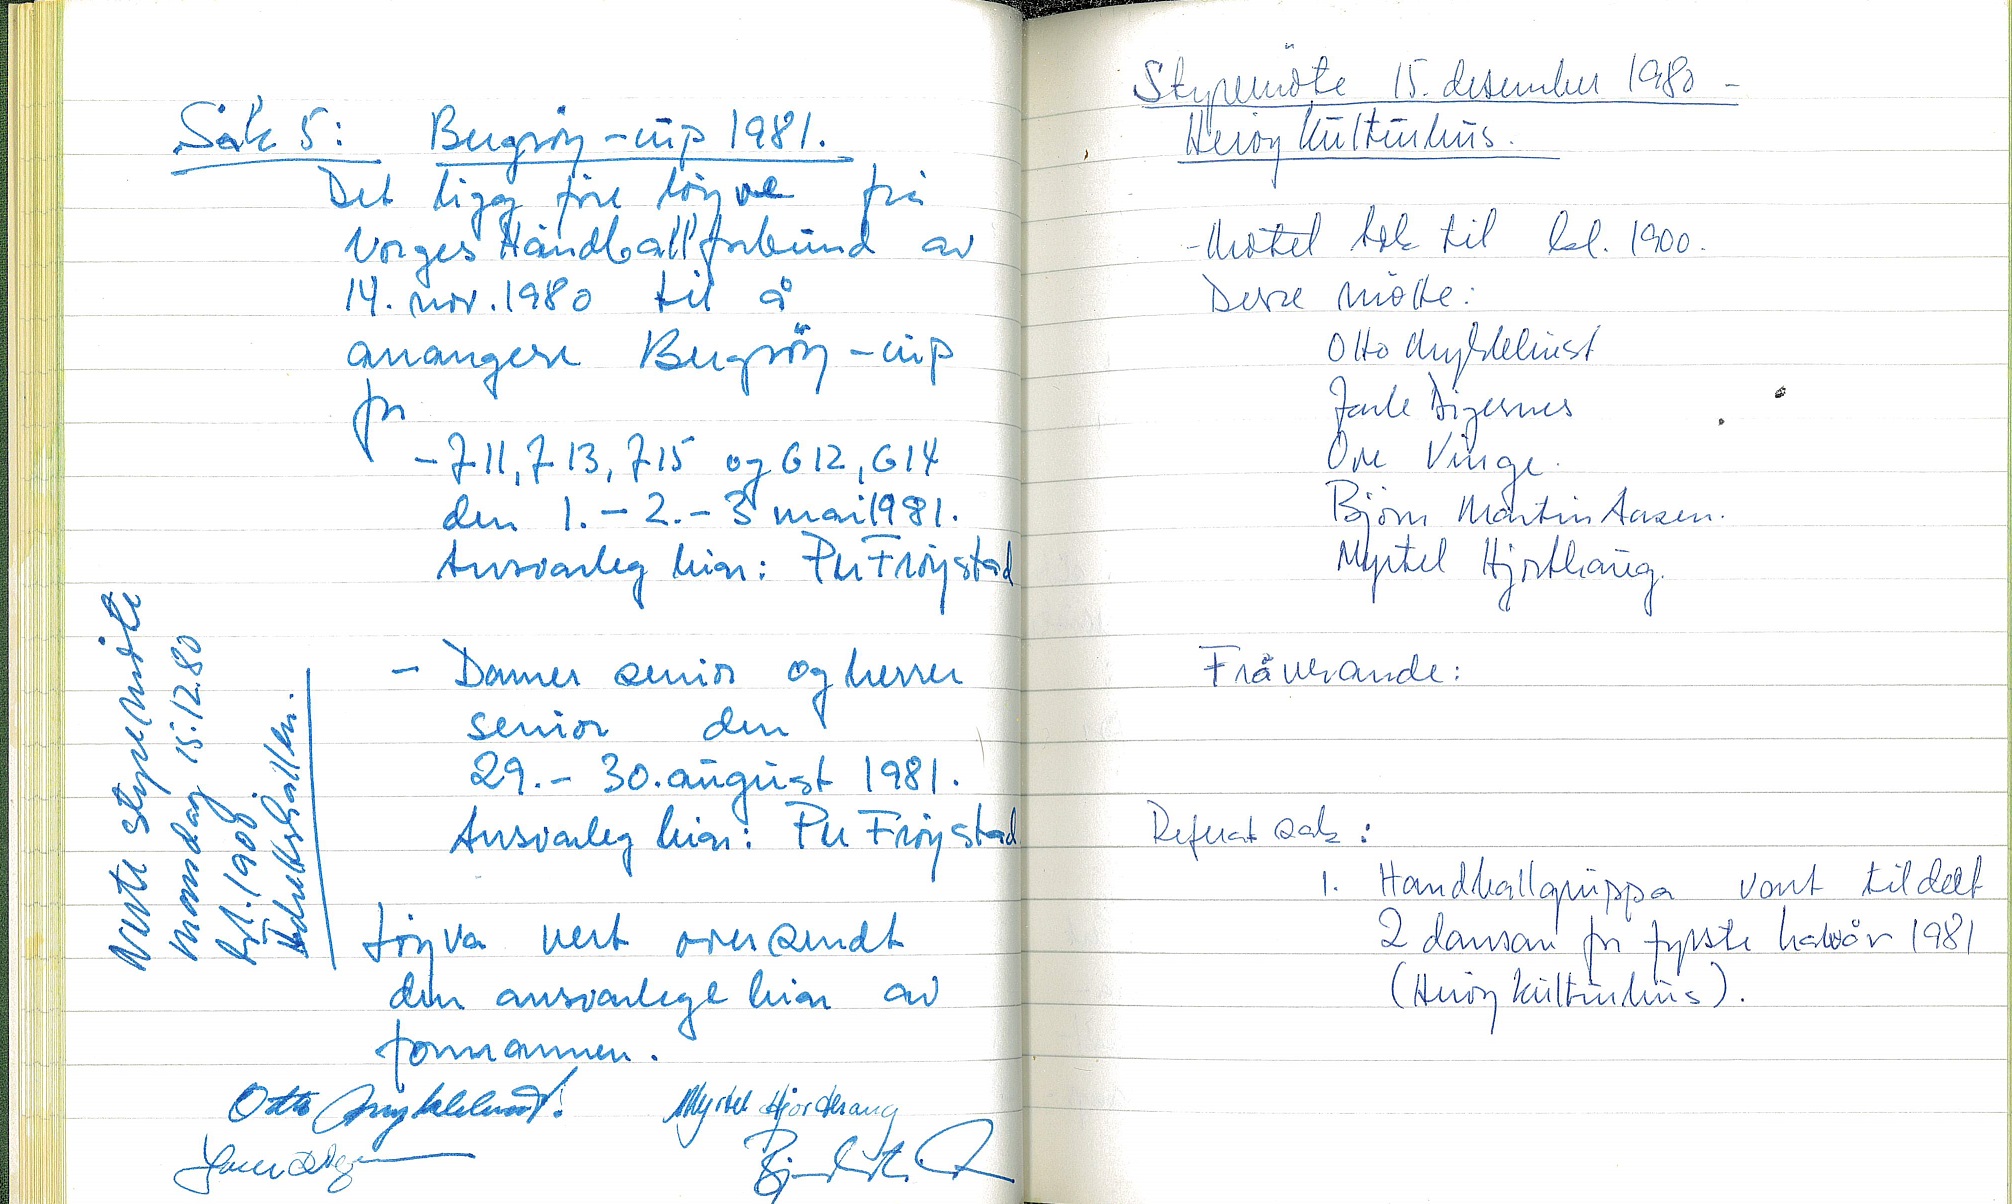 Sak 5: Bergsöy-cup 1981.
Det ligg före löyve frå
Norges Håndballforbund av
14. nov. 1980 til å
arrangere Bergsöy-cup
for
- J11, J13, J15 og G12, G14
den 1.-2.-3 mai 1981.
Ansvarleg her: Per Fröystad
- Damer senior og herrer
senior den
29.- 30. august 1981.
Ansvarleg her: Per Fröystad
Löyva vert oversendt
den ansvarlege her av
formannen.
Otto Myklebust
Myrtel Hjorthaug
Neste styremöte
mandag 15.12.80
kl. 1900
Idrettshallen.
Styremöte 15. desember 1980 -
Heröy Kulturhus.
- Mötet tok til kl. 1900.
Desse mötte:
Otto Myklebust
Jarle Digernes
Ove Vinge.
Björn Martin Aasen.
Myrtel Hjorthaug.
Fråverande:
Referat sak:
1. Handballgruppa vart tildelt
2 dansar for fyrste halvår 1981
(Heröy kulturhus).